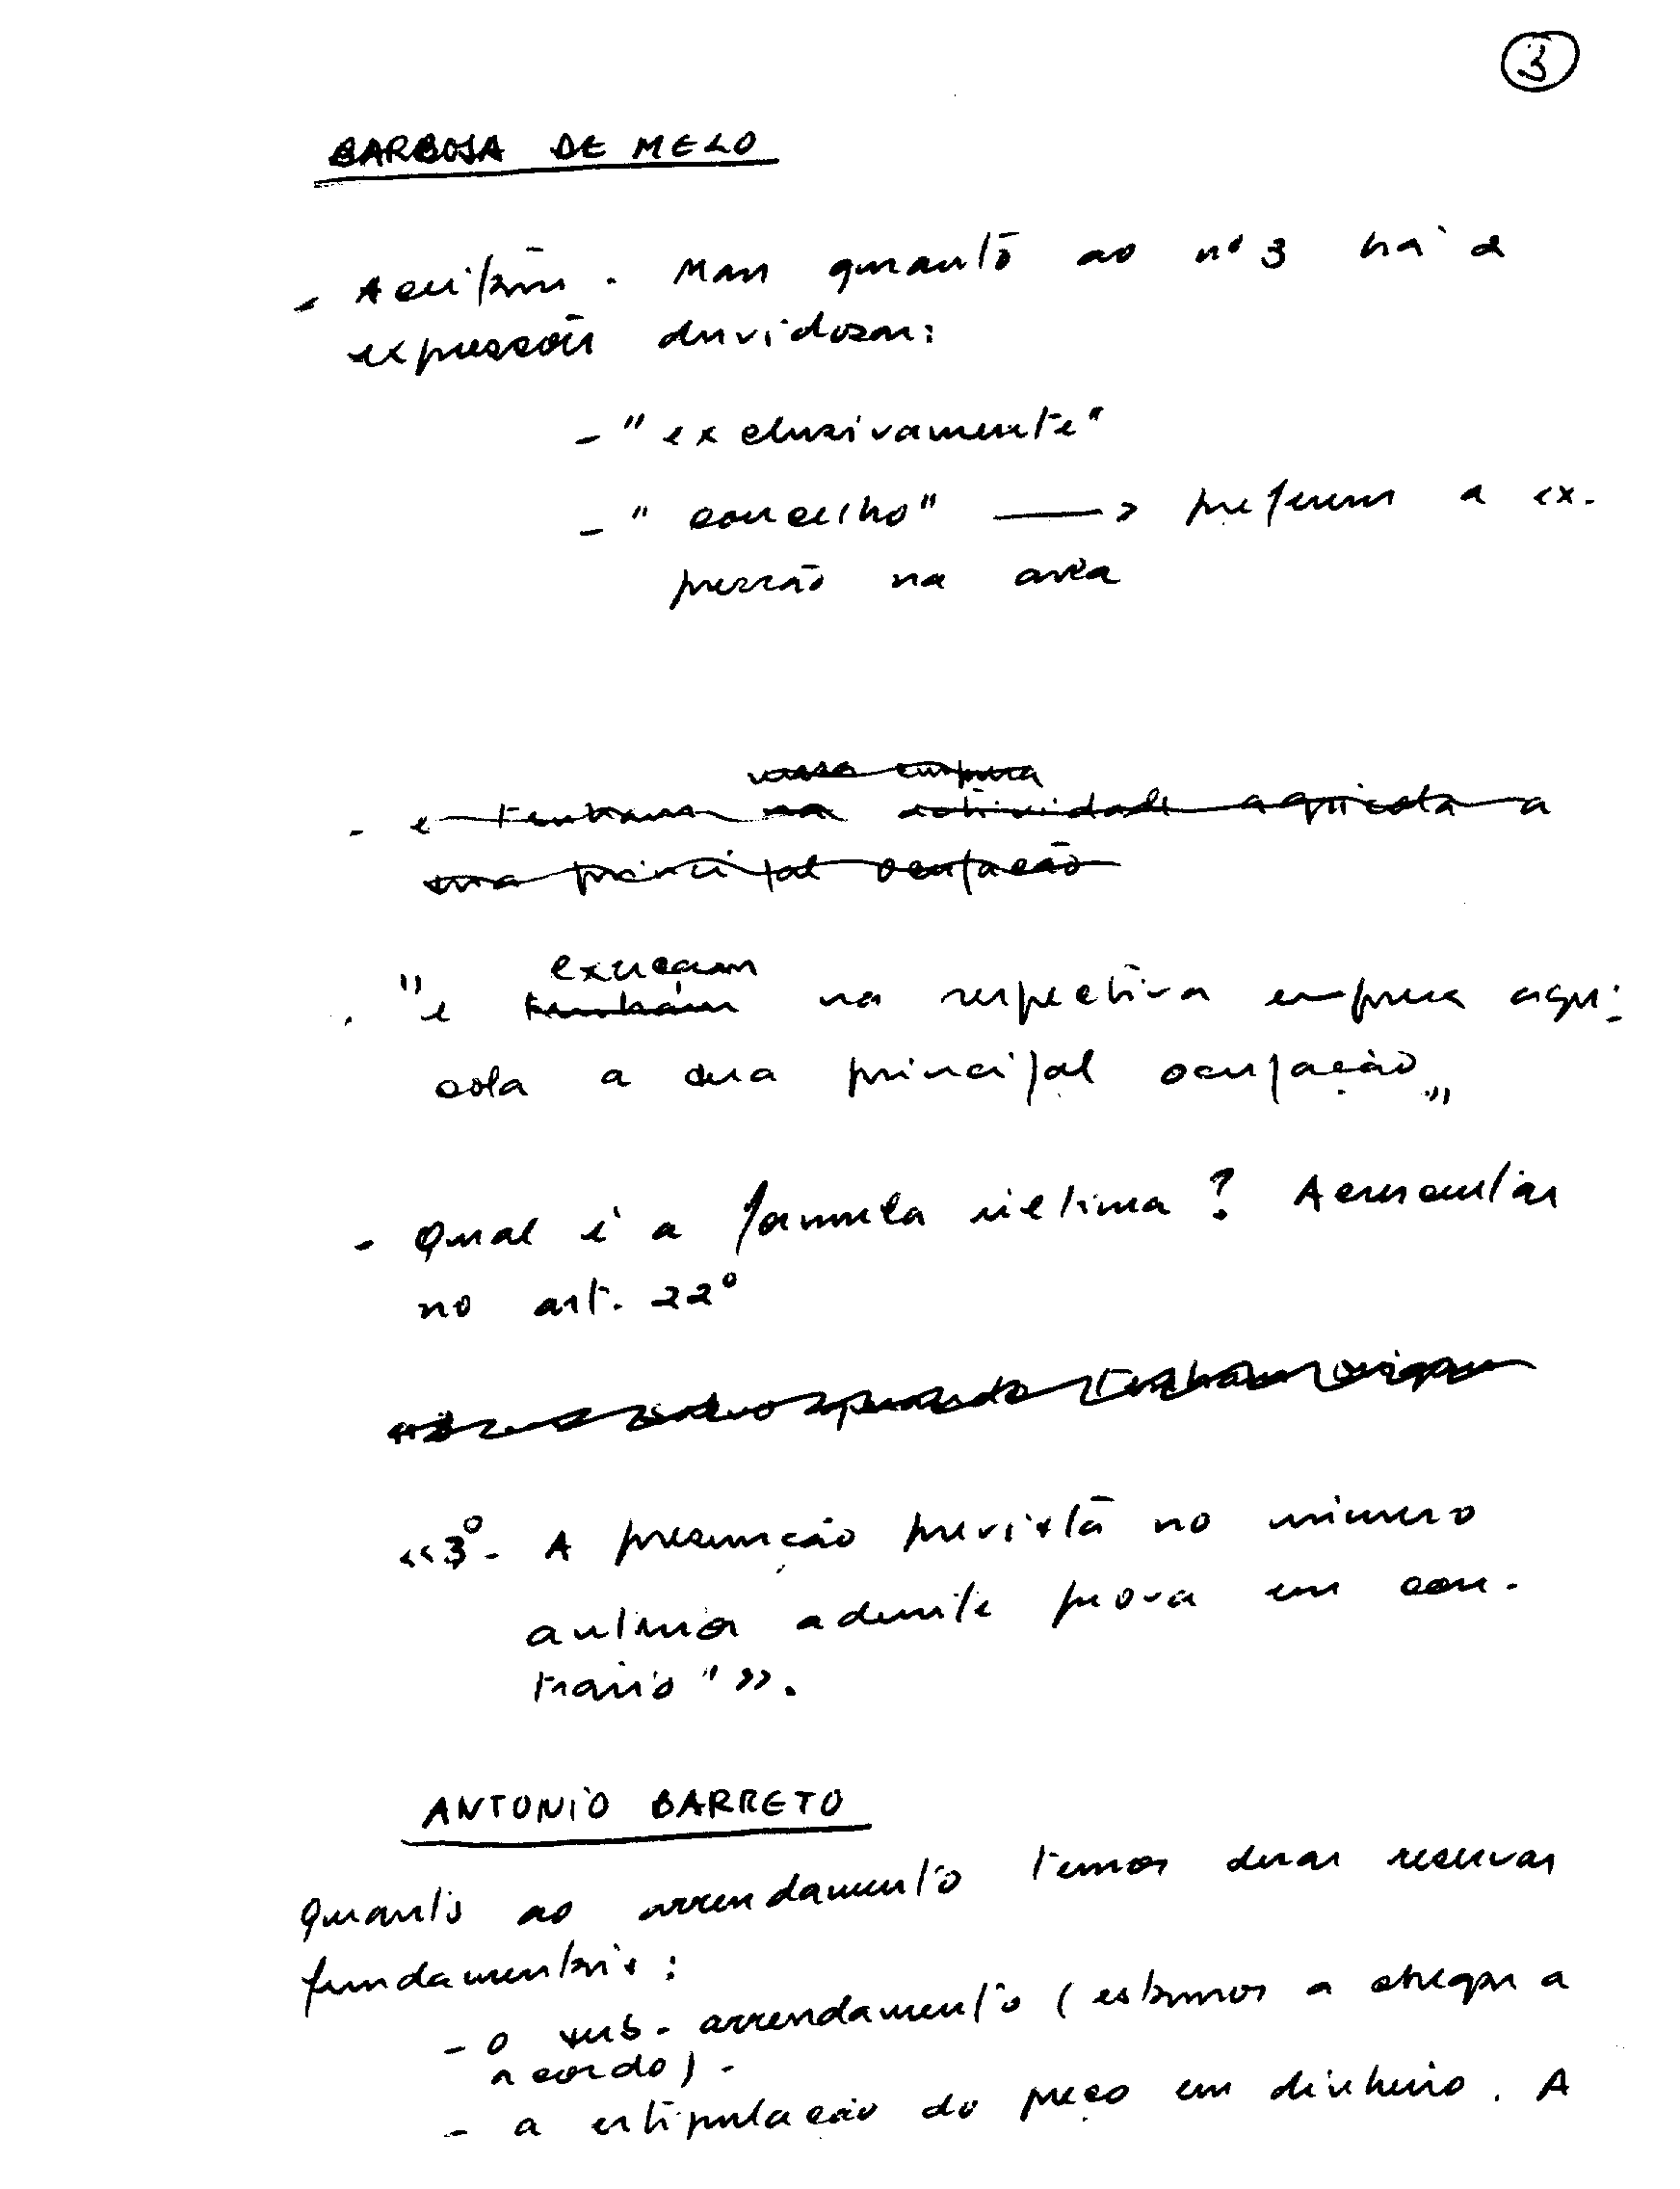 3
BARBOSA DE MELO
- Aceitam. Mas quanto ao nº 3 há 2
expressões duvidosas:
- "exclusivamente"
- "concelho" → preferem a ex-
pressão na área
nessa empresa
- e tenham na actividade agrícola a
sua principal ocupação
exerçam
. "e tenham na respectiva empresa agrí-
cola a sua principal ocupação"
- Qual é a fórmula última? Acrescentar
no art. 22º
salvo quando tenham origem
«3º- A presunção prevista no número
anterior admite prova em con-
trário"».
ANTONIO BARRETO
Quanto ao arrendamento temos duas reservas
fundamentais:
- o sub-arrendamento (estamos a chegar a
acordo).
- a estipulação do preço em dinheiro. A